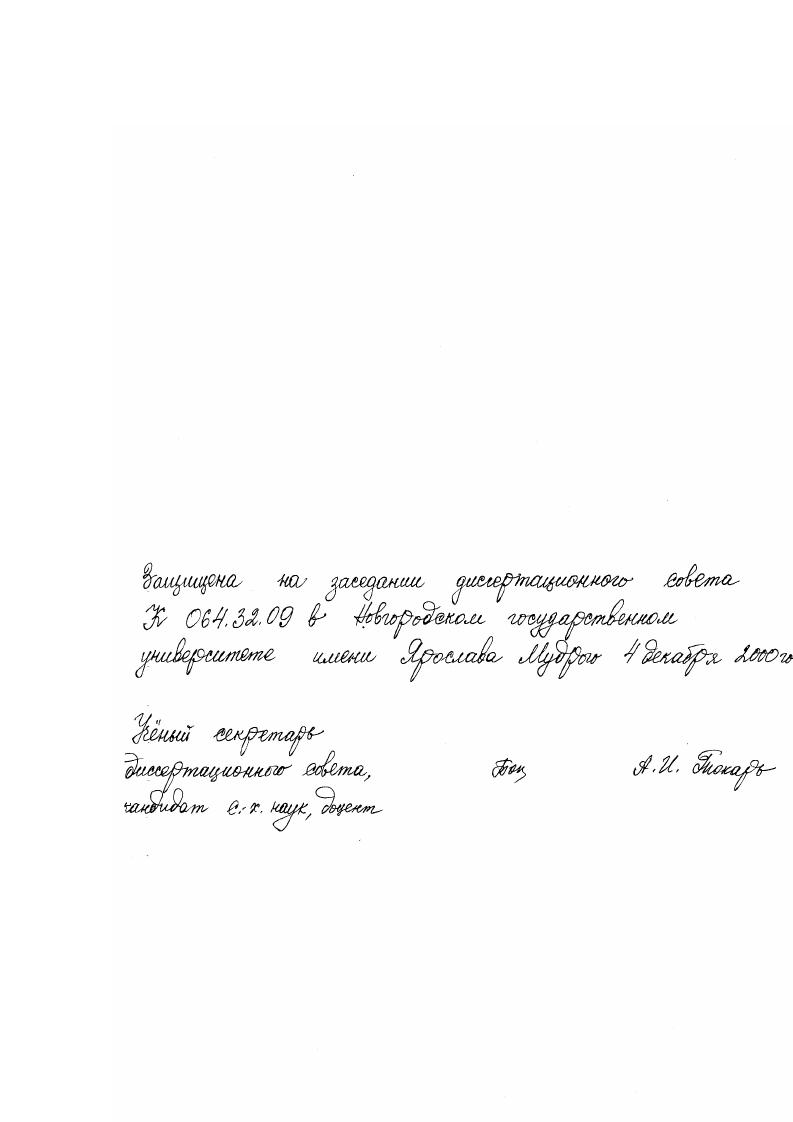 Защищена на заседании диссертационного совета
К 064.32.09 в Новгородском государственном
университете имени Ярослава Мудрого 4 декабря 2000го
Учёный секретарь
диссертационного совета, А.И. Токарь
кандидат с.-х. наук, доцент